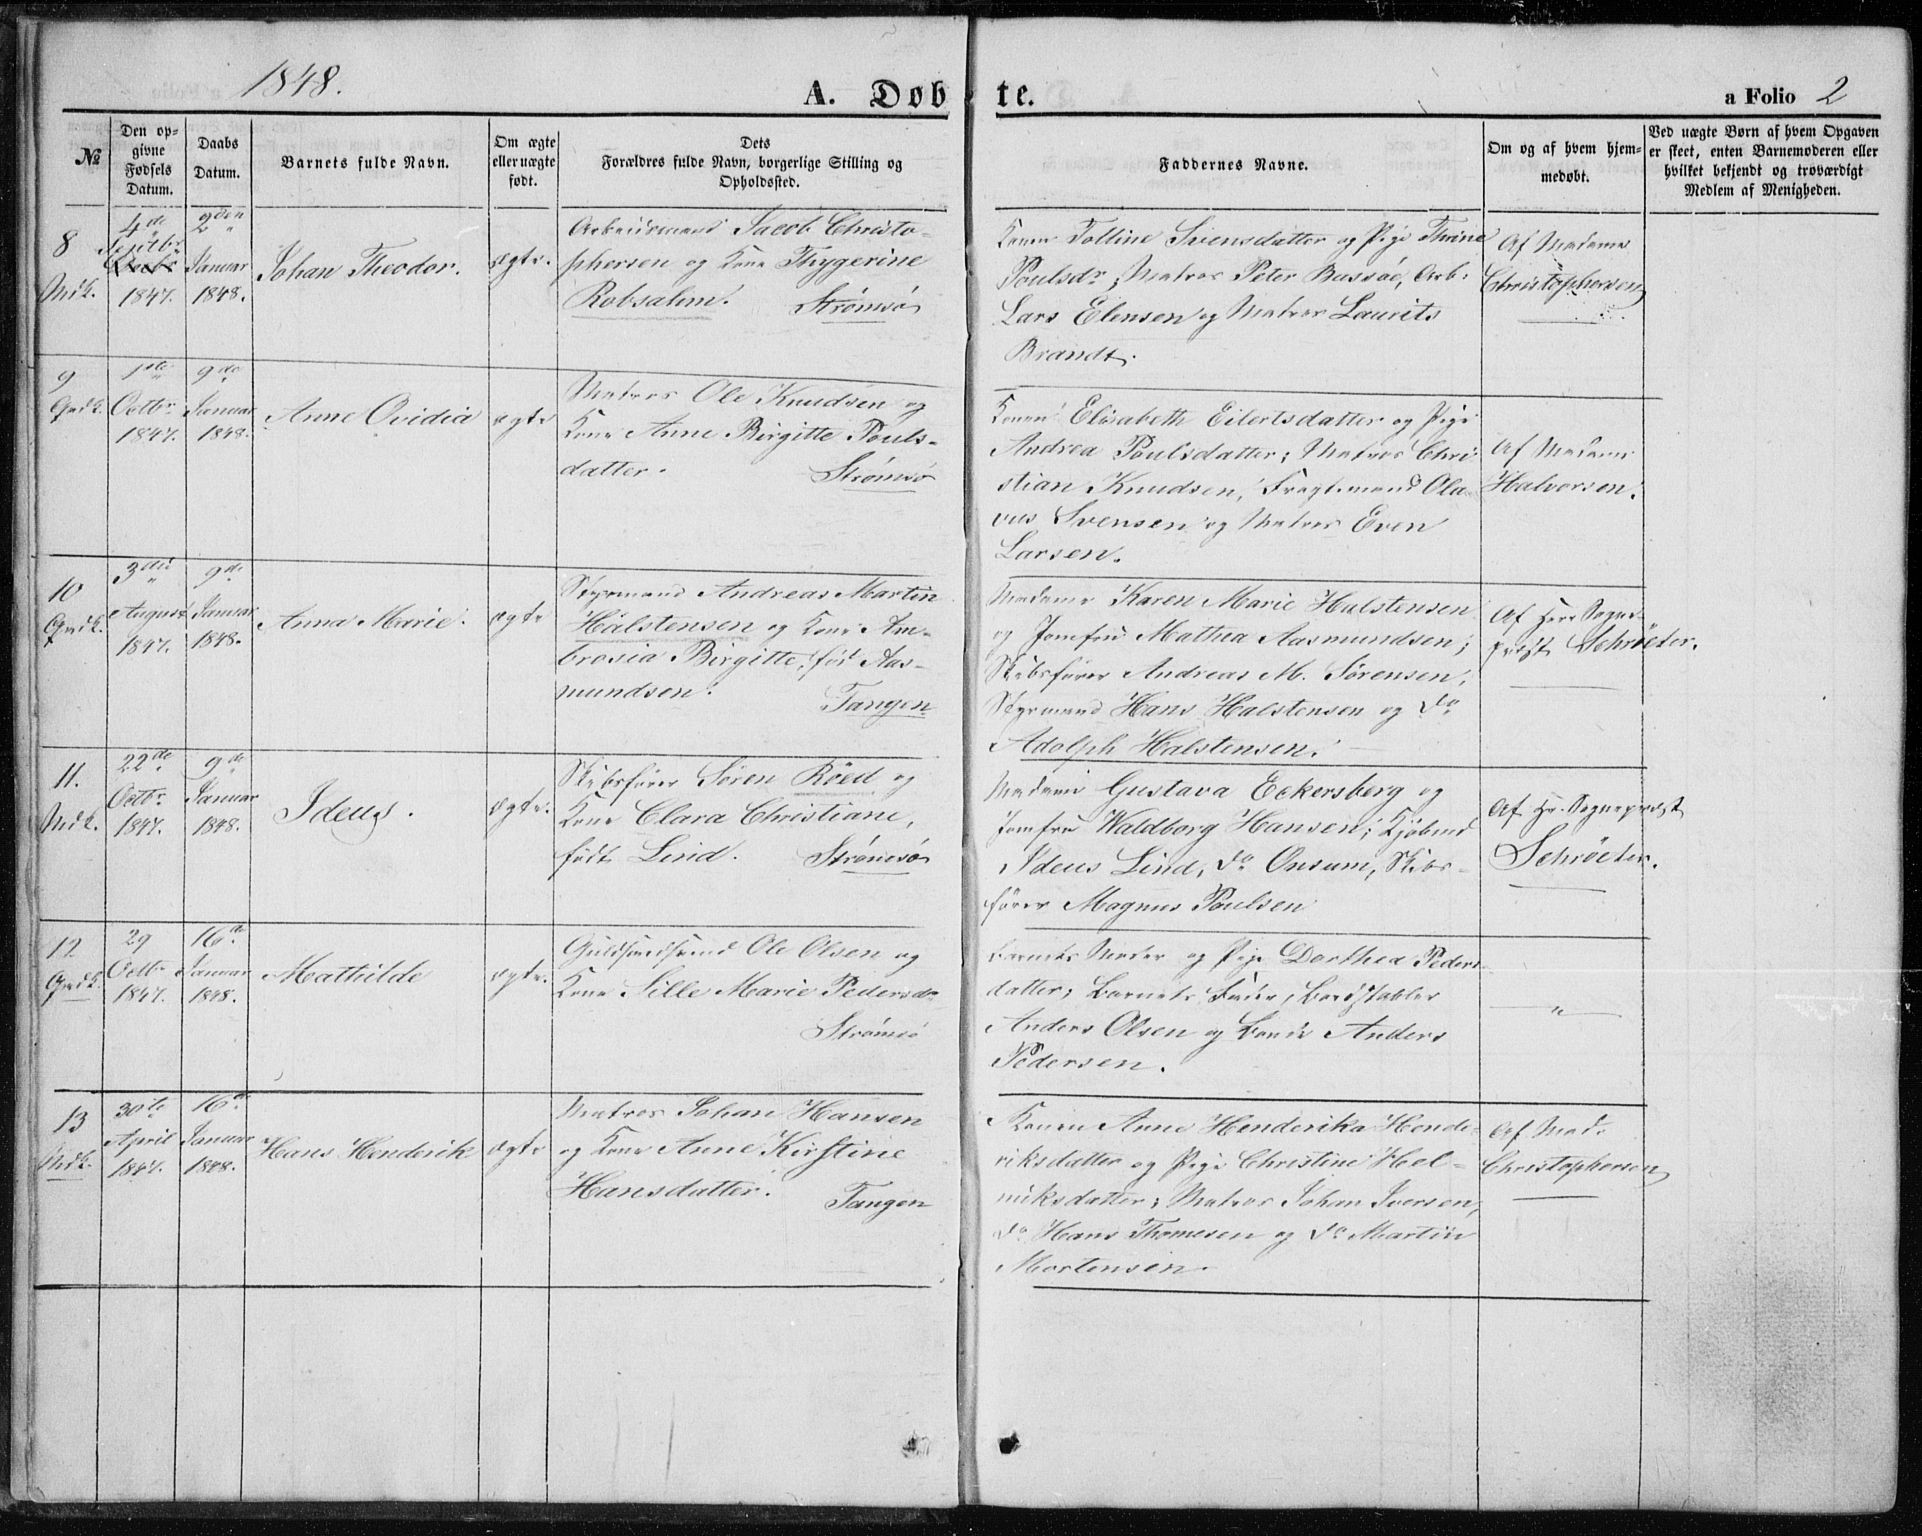 1848.
A. Døbte.
a Folio 2
№
Den opgivne Fødsels Datum.
Daabs Datum.
Barnets fulde Navn.
Om ægte eller uægte født.
Dets Forældres fulde Navn, borgerlige Stilling og Opholdssted.
Faddernes Navne.
Om og af hvem hjemmedøbt.
Ved uægte Børn af hvem Opgaven er skeet, enten Barnemoderen eller hvilket bekjendt og troværdigt Medlem af Menigheden.
8
Mdk.
4de Septbr 1847.
2den Januar 1848.
Johan Theodor.
ægte.
Arbeidsmand Jacob Christo-
phersen og Kone Thygerine
Robsalem.
Strømsø
Konen Toltine Svensdatter og Pige Thrine
Poulsdr; Matros Peter Bassøe, Arb:
Lars Elensen og Matros Laurits
Brandt.
Af Madame
Christophersen
9
Qvdk.
1ste Octbr 1847.
9de Januar 1848.
Anne Ovidia
ægte
Matros Ole Knudsen og
Kone Anne Birgitte Pouls-
datter.
Strømsø
Konen Elisabeth Eilertsdatter og Pige
Andrea Poulsdatter; Matros Chri-
stian Knudsen, Fragtemand Ola-
vus Svensen og Matros Even
Larsen.
Af Madame
Halvorsen.
10
Qvdk.
3die August 1847.
9de Januar 1848.
Anna Marie.
ægte
Styrmand Andreas Martin
Halstensen og Kone Am-
brosia Birgitte, fød Aas-
mundsen.
Tangen
Madame Karen Marie Halstensen
og Jomfru Mathea Aasmundsen;
Skibsfører Andreas M. Sørensen,
Styrmand Hans Halstensen og Do
Adolph Halstensen.
Af Herr Sogne-
præst Schrøeter.
11.
Mdk.
22de Octbr 1847.
9de Januar 1848.
Ideus.
ægte.
Skibsfører Søren Röed og
Kone Clara Christiane,
født Lind.
Strømsø
Madame Gustava Eckersberg og
Jomfru Waldborg Hansen; Kjøbmd
Ideus Lind, Do Onsum, Skibs-
fører Magnus Poulsen
Af Hr. Sognepræst
Schrøeter.
12
Qvdk.
29 Octbr 1847.
16de Januar 1848.
Mathilde
ægte.
Guldsmedsvend Ole Olsen og
Kone Sille Marie Pedersdr
Strømsø
Barnets Moder og Pige Dorthea Peders-
datter; Barnets Fader, Bordstabler
Anders Olsen og Bonde Anders
Pedersen.
"
13
Mdk.
30te April 1847.
16de Januar 1848.
Hans Henderik
ægte
Matros Johan Hansen
og Kone Anne Kirstine
Hansdatter.
Tangen
Konen Anne Henderika Hende-
riksdatter og Pige Christine Hel-
miksdatter; Matros Johan Iversen,
Do Hans Thomesen og Do Martin
Mortensen.
Af Mad.
Christophersen